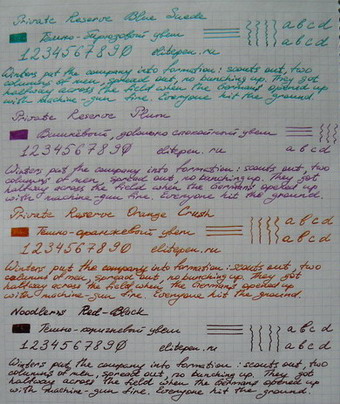 Private Reserve Blue Suede
Темно-бирюзовый цвет
a b c d
a b c d
1234567890 elitepen.ru
Winters put the company into formation: scouts out, two
columns of men, spread out, no bunching up. They got
halfway across the field when the Germans opened up
with machine-gun fire. Everyone hit the ground.
Private Reserve Plum
Вишневый, довольно спокойный цвет
1234567890 elitepen.ru
a b c d
Winters put the company into formation: scouts out, two
columns of men, spread out, no bunching up. They got
halfway across the field when the Germans opened up
with machine-gun fire. Everyone hit the ground.
Private Reserve Orange Crush
Темно-оранжевый цвет
a b c d
a b c d
1234567890 elitepen.ru
Winters put the company into formation: scouts out, two
columns of men, spread out, no bunching up. They got
halfway across the field when the Germans opened up
with machine-gun fire. Everyone hit the ground.
Noodlers Red-Black
Темно-коричневый цвет
a b c d
a b c d
1234567890 elitepen.ru
Winters put the company into formation: scouts out, two
columns of men, spread out, no bunching up. They got
halfway across the field when the Germans opened up
with machine-gun fire. Everyone hit the ground.